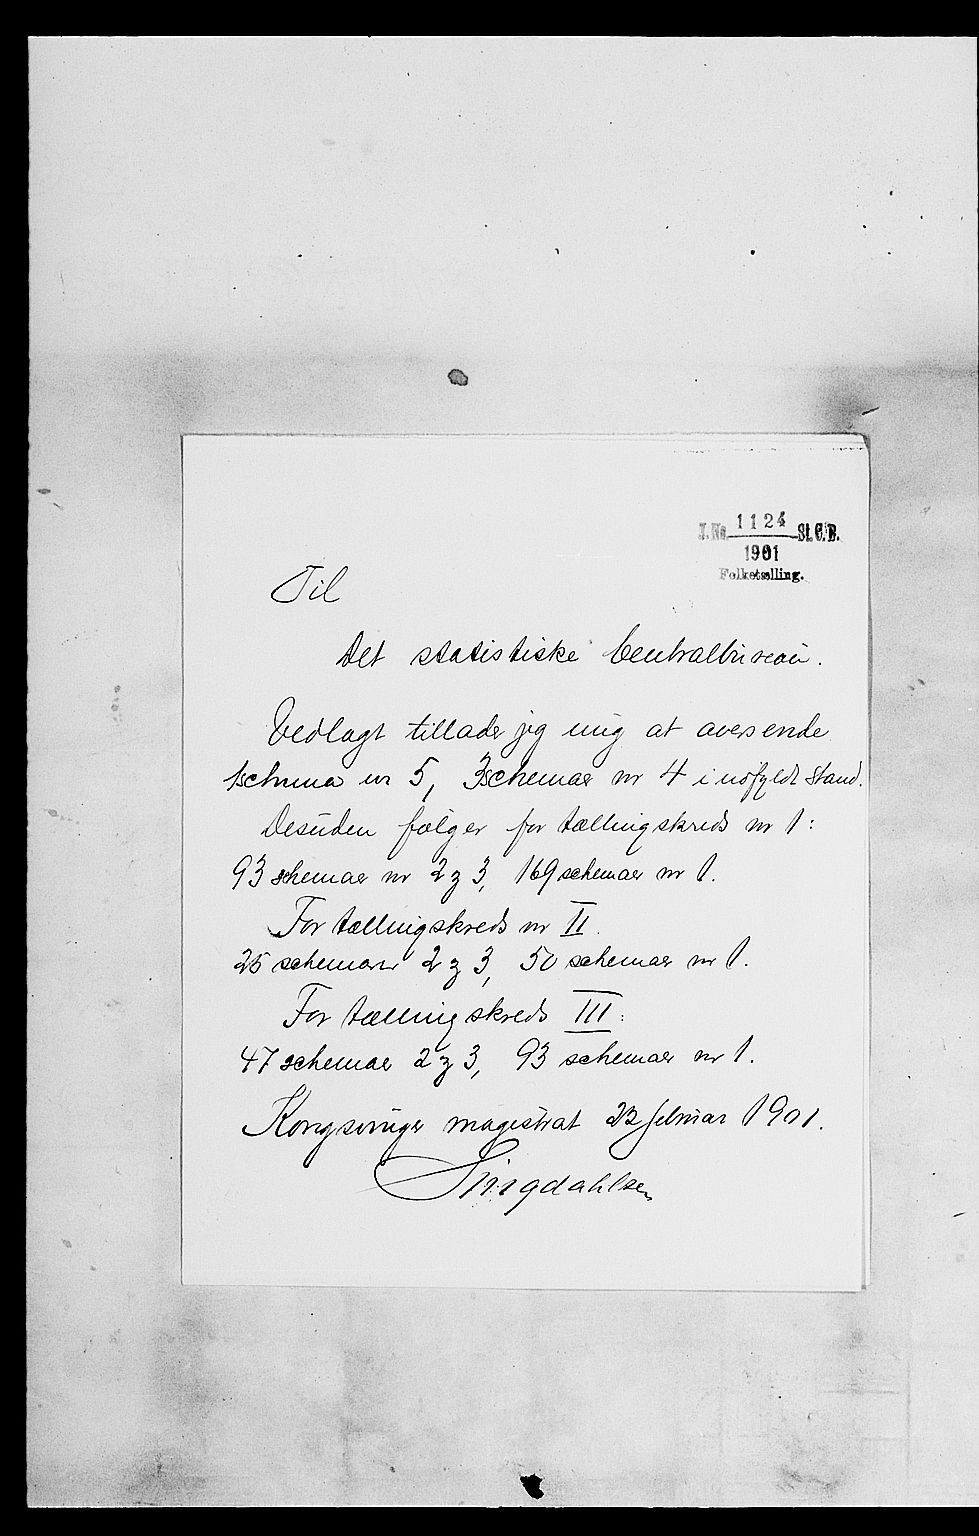 J.No. 1124 St.C.B.
1901
Folketælling.
Til
Det statistiske Centralbureau.
Vedlagt tillader jeg mig at oversende
1schema nr 5, 3schemaer nr 4 i udfyldt Stand.
Desuden følger for tællingskreds nr 1:
93 schemaer nr 2 g 3, 169 schemaer nr 1.
For tællingskreds nr II.
25 schemaer 2 g 3, 50 schemaer nr 1.
For tællingskreds III:
47 schemaer 2 g 3, 93 schemaer nr 1.
Kongsvinger magistrat 23 februar 1901.